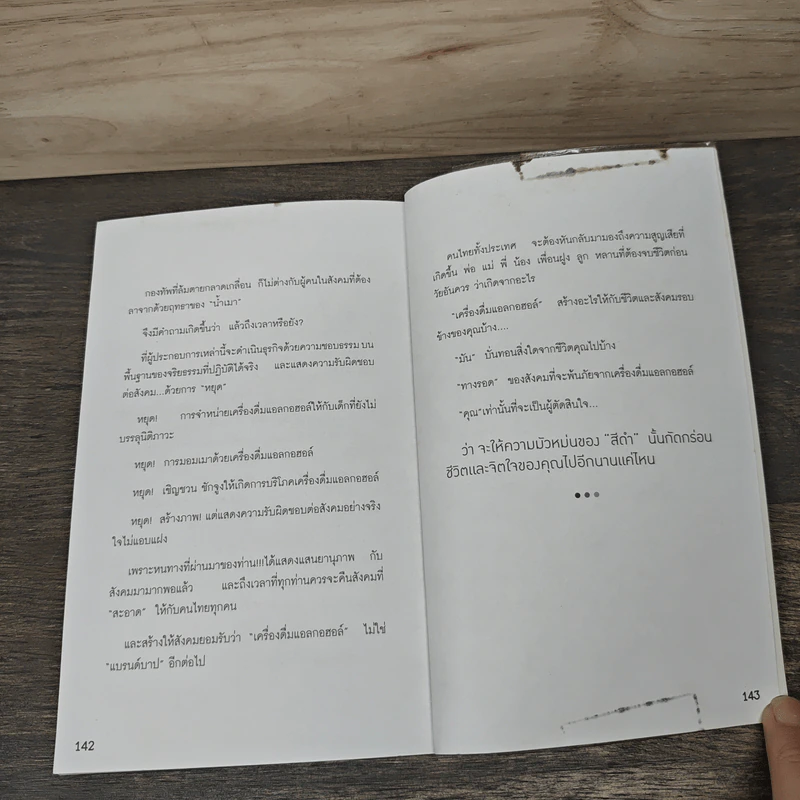 กองทัพที่ล้มตายกลาดเกลื่อน ก็ไม่ต่างกับผู้คนในสังคมที่ต้อง
ลาจากด้วยฤทธาของ "น้ำเมา"
จึงมีคำถามเกิดขึ้นว่า แล้วถึงเวลาหรือยัง?
ที่ผู้ประกอบการเหล่านี้จะดำเนินธุรกิจด้วยความชอบธรรม บน
พื้นฐานของจริยธรรมที่ปฏิบัติได้จริง และแสดงความรับผิดชอบ
ต่อสังคม...ด้วยการ "หยุด"
หยุด! การจำหน่ายเครื่องดื่มแอลกอฮอล์ให้กับเด็กที่ยังไม่
บรรลุนิติภาวะ
หยุด! การมอมเมาด้วยเครื่องดื่มแอลกอฮอล์
หยุด! เชิญชวน ชักจูงให้เกิดการบริโภคเครื่องดื่มแอลกอฮอล์
หยุด! สร้างภาพ! แต่แสดงความรับผิดชอบต่อสังคมอย่างจริง
ใจไม่แอบแฝง
เพราะหนทางที่ผ่านมาของท่าน!!!ได้แสดงแสนยานุภาพ กับ
สังคมมามากพอแล้ว และถึงเวลาที่ทุกท่านควรจะคืนสังคมที่
"สะอาด" ให้กับคนไทยทุกคน
และสร้างให้สังคมยอมรับว่า "เครื่องดื่มแอลกอฮอล์" ไม่ใช่
"แบรนด์บาป" อีกต่อไป
142
คนไทยทั้งประเทศ จะต้องหันกลับมามองถึงความสูญเสียที่
เกิดขึ้น พ่อ แม่ พี่ น้อง เพื่อนฝูง ลูก หลานที่ต้องจบชีวิตก่อน
วัยอันควร ว่าเกิดจากอะไร
"เครื่องดื่มแอลกอฮอล์" สร้างอะไรให้กับชีวิตและสังคมรอบ
ข้างของคุณบ้าง....
"มัน" บั่นทอนสิ่งใดจากชีวิตคุณไปบ้าง
"ทางรอด" ของสังคมที่จะพ้นภัยจากเครื่องดื่มแอลกอฮอล์
"คุณ"เท่านั้นที่จะเป็นผู้ตัดสินใจ...
ว่า จะให้ความมัวหม่นของ "สีดำ" นั้นกัดกร่อน
ชีวิตและจิตใจของคุณไปอีกนานแค่ไหน
143